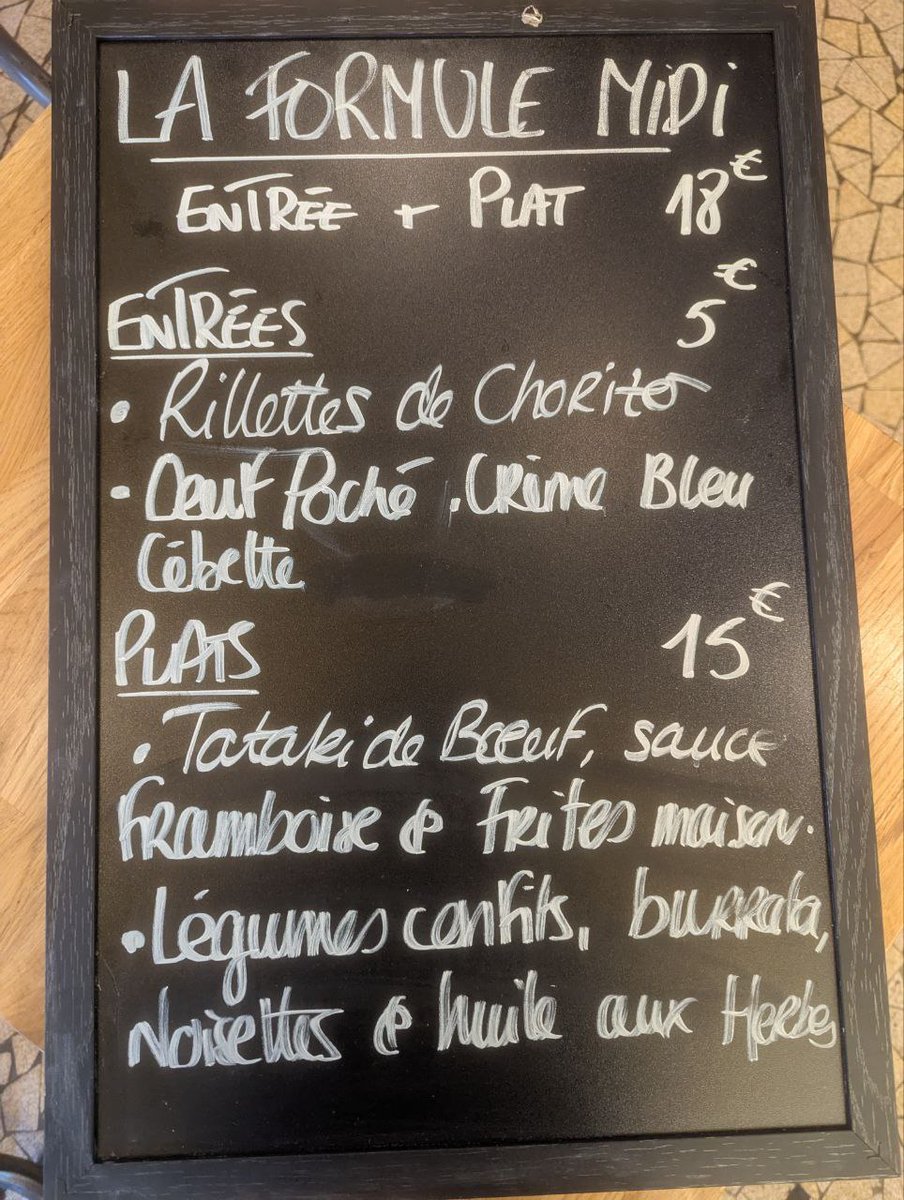 LA FORMULE MiDi
ENTRÉE + PLAT 18€
ENTRÉES 5€
• Rillettes de Chorizo
• Oeuf Poché, Crème Bleu
Cébette
PLATS 15€
• Tataki de Bœuf, sauce
Framboise & Frites maison.
• Légumes confits, burrata,
Noisettes & huile aux Herbes